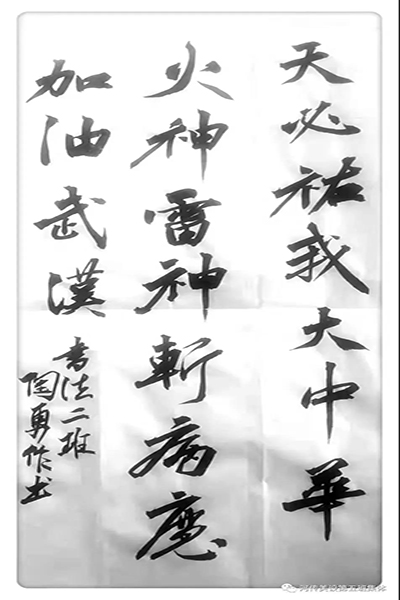 天必祐我大中華
火神雷神斬病魔
加油武漢
書法二班
陶勇作书